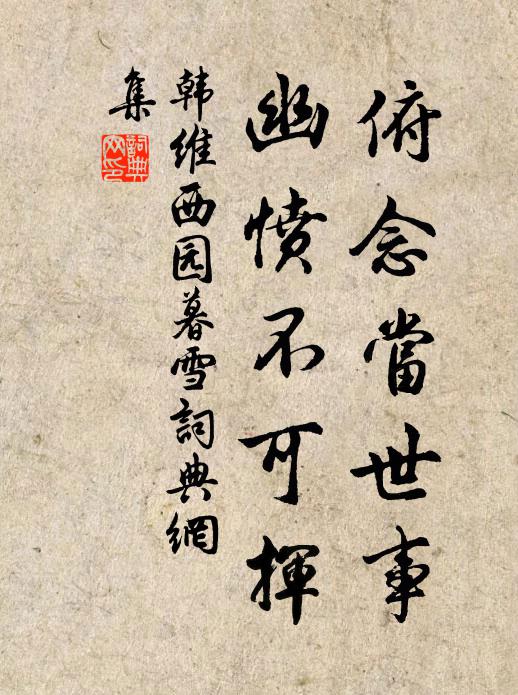 俯念當世事
幽憤不可揮
韩維西园暮雪詞典網
集
詞典网印